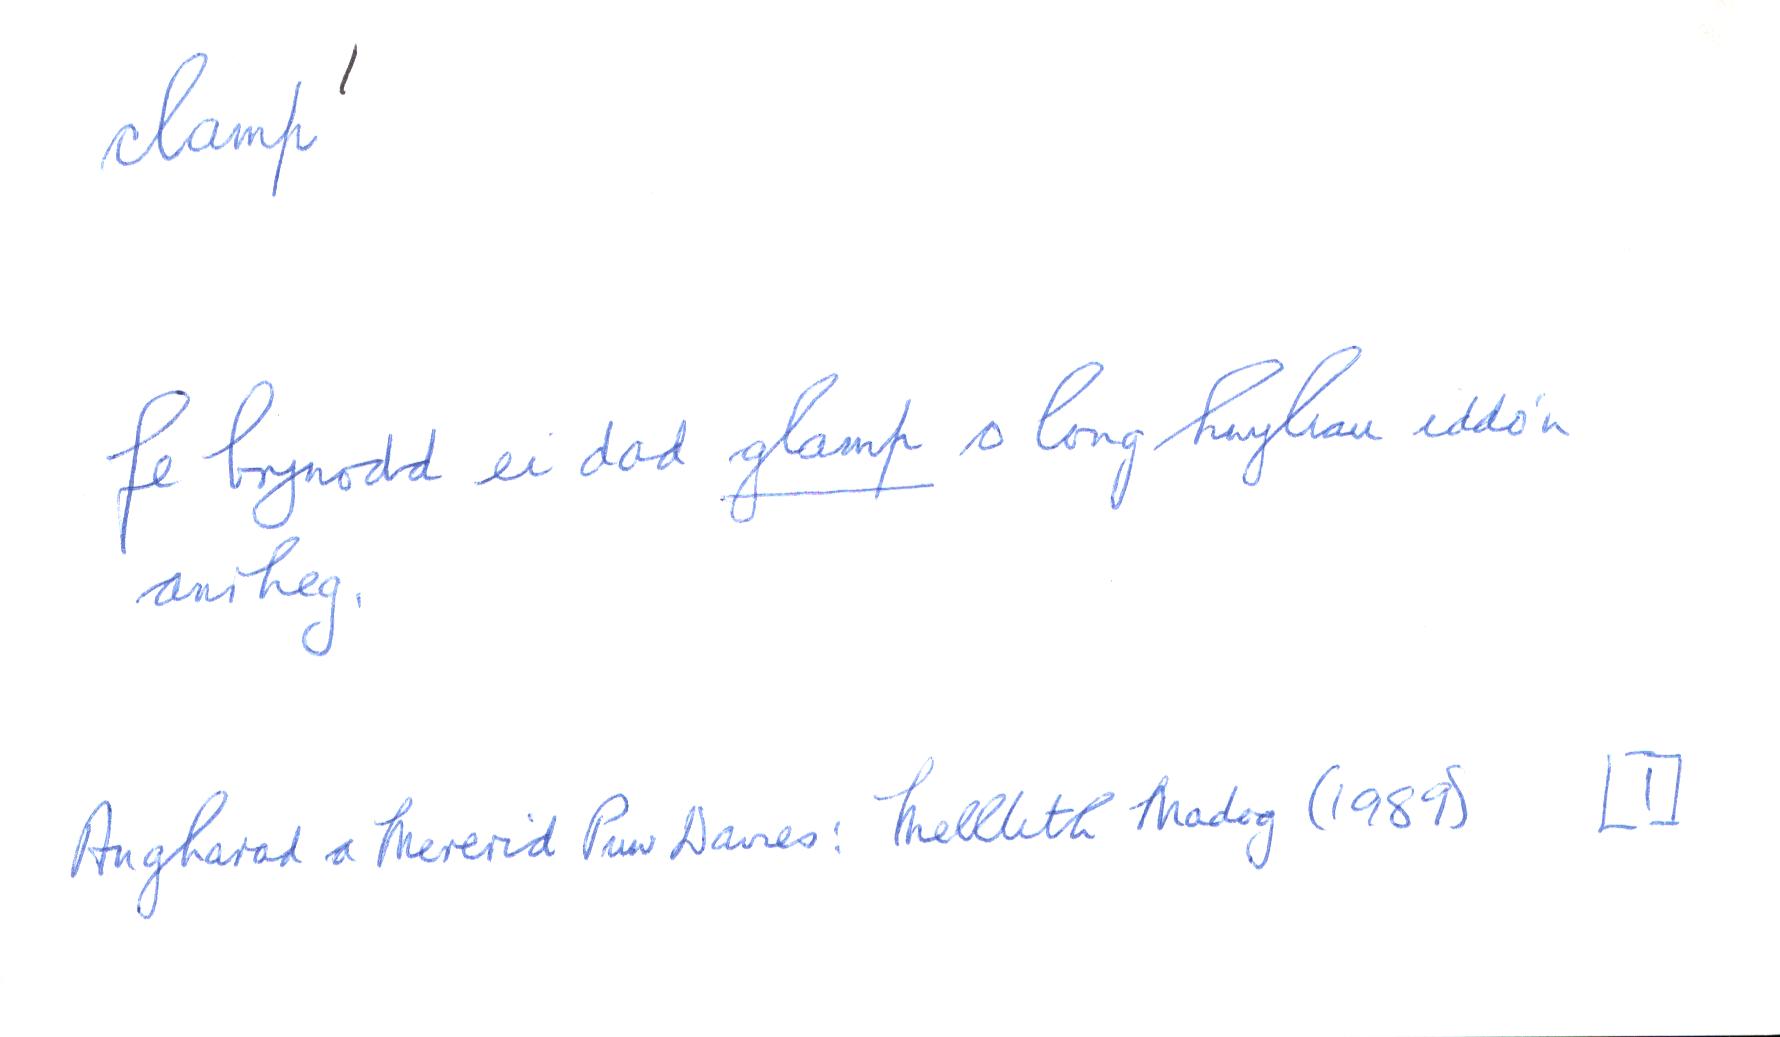 clamp¹
fe brynodd ei dad glamp o long hwyliau iddo'n
anrheg.
Angharad a Mererid Puw Davies: Melltith Madog (1989) [1]